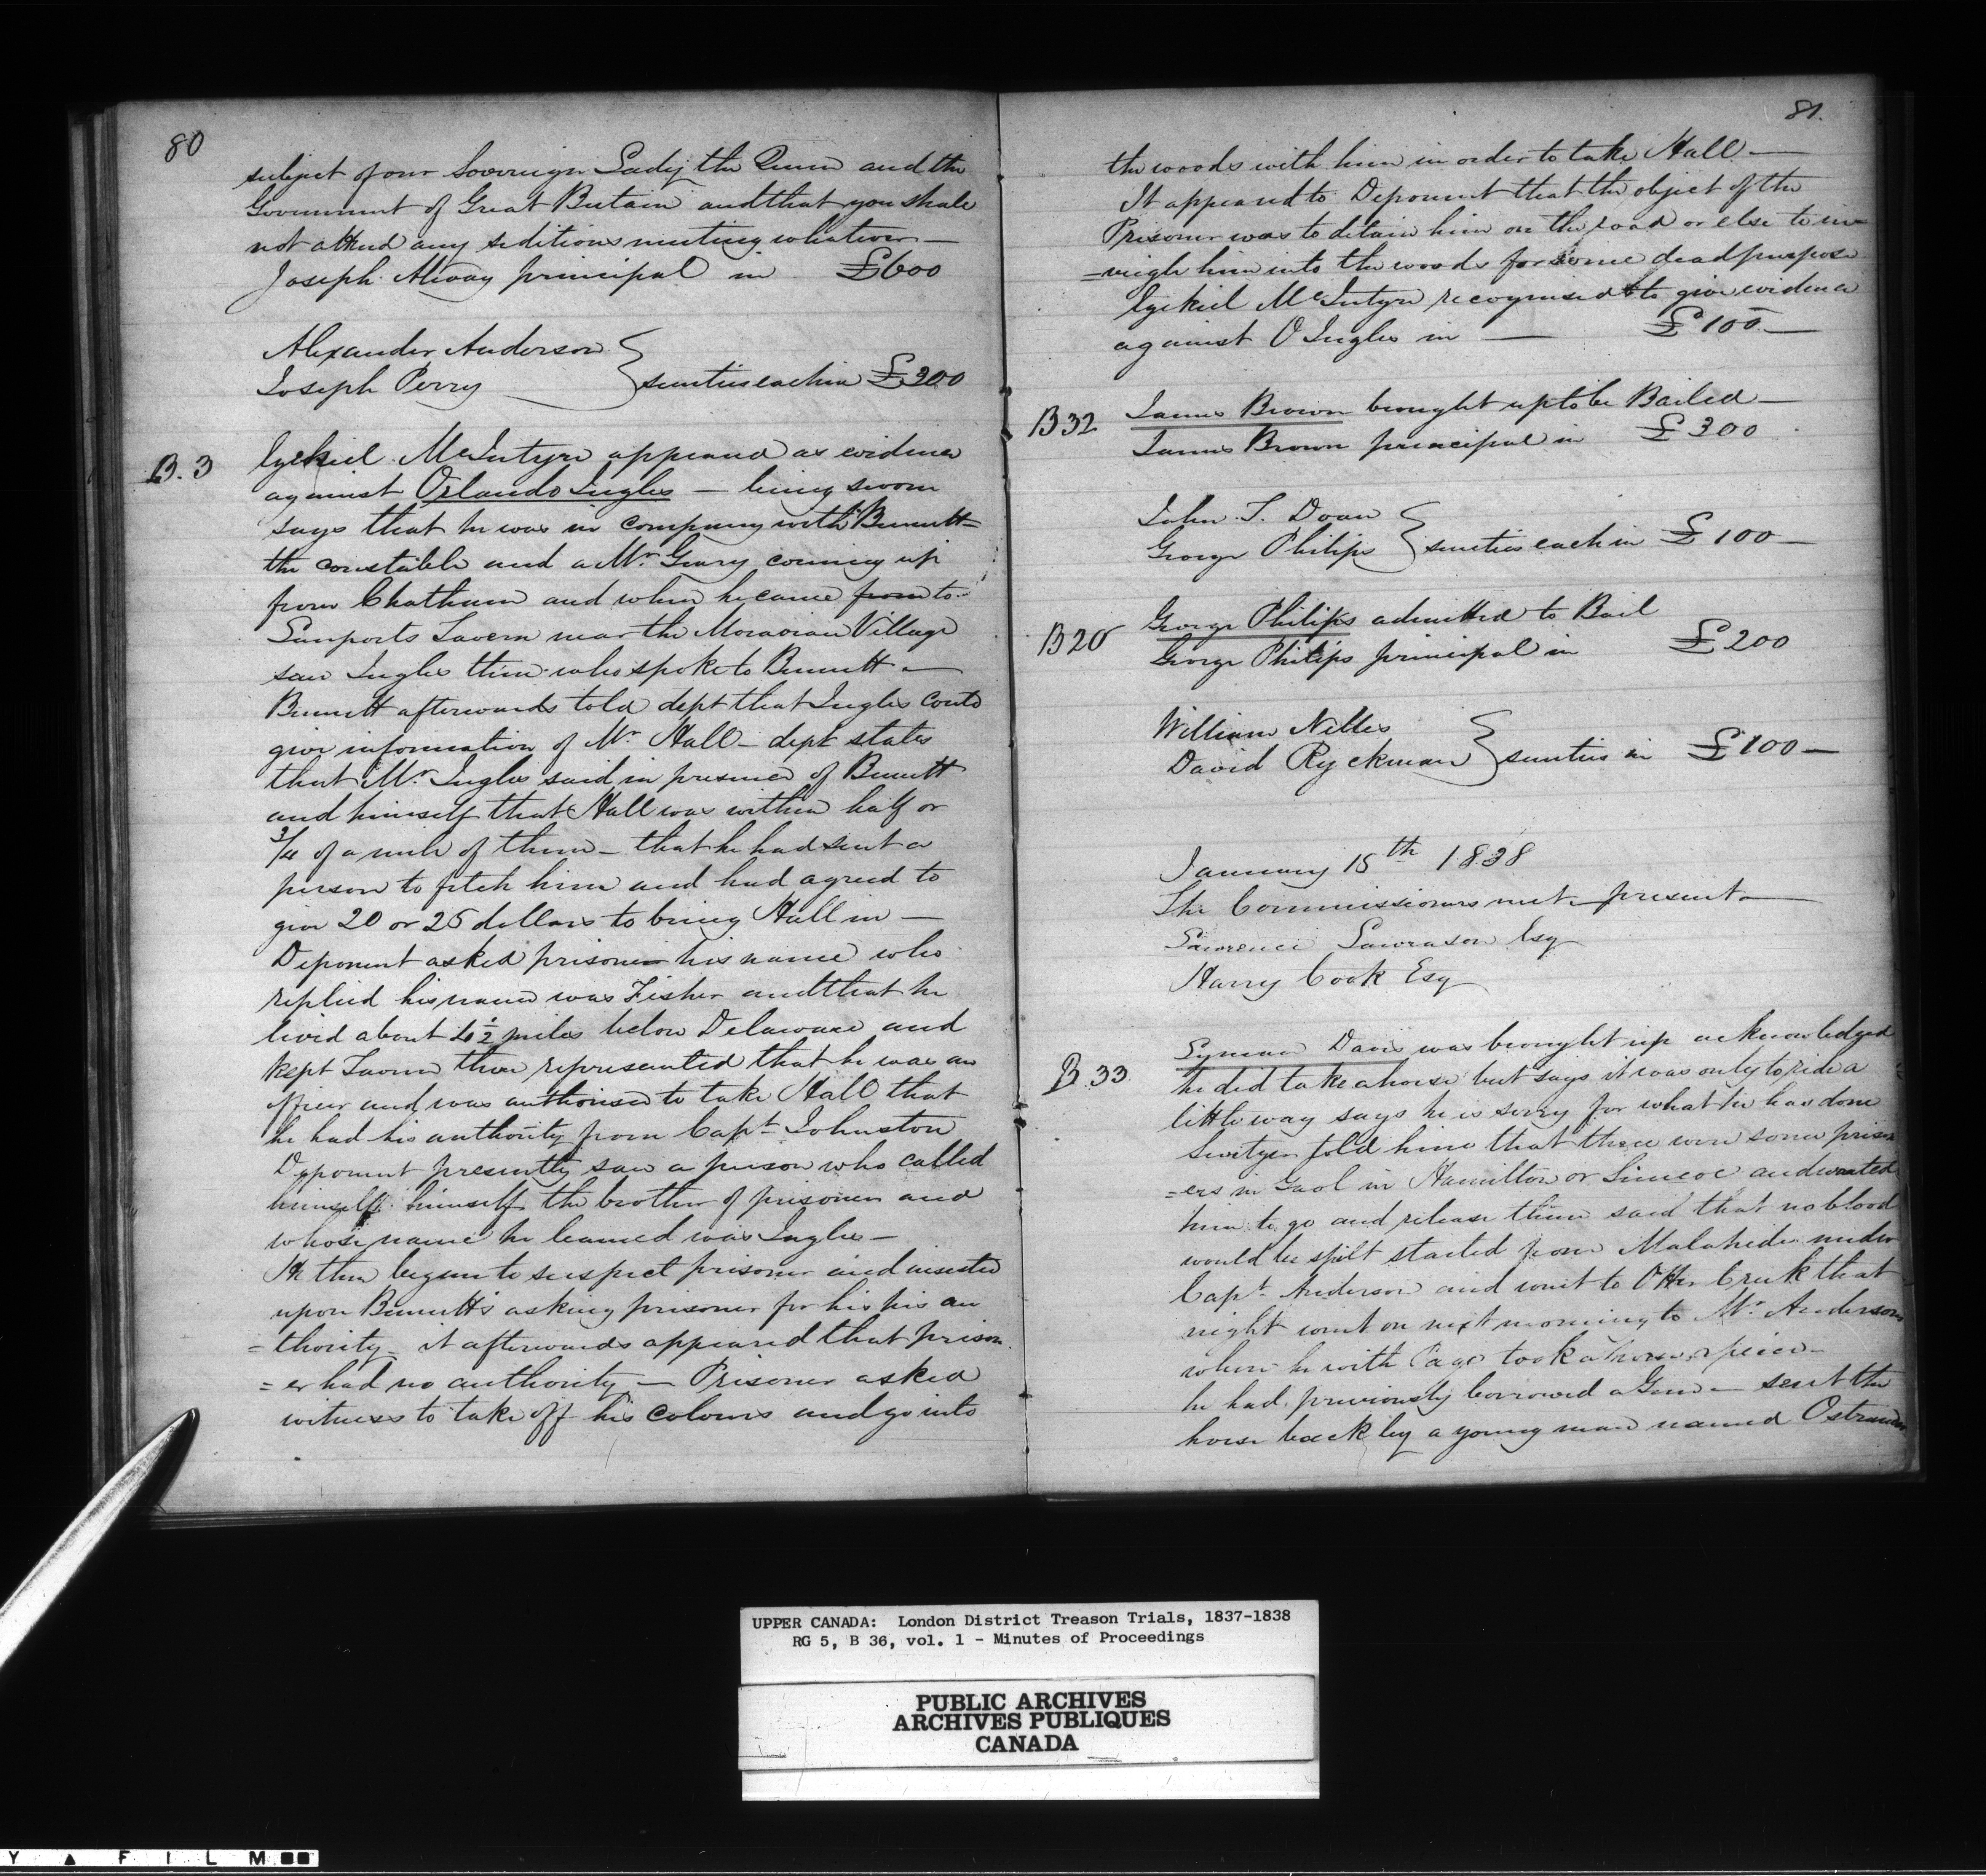 80
subject of our Sovereign Lady the Queen and the
Government of Great Britain and that you shall
not attend any seditious meeting whatever —
Joseph Alway principal in £600
Alexander Anderson
Joseph Perry } sureties each in £300
B. 3
Ezekiel McIntyre appeared as evidence
against Orlando Ingles — being sworn
says that he was in company with Bennett
the constable and a Mr. Geary coming up
from Chatham and when he came from to
tavern near the Moravian Village
saw Ingles there who spoke to Bennett —
Bennett afterwards told dept that Ingles could
give information of Mr Hall — dept states
that Mr. Ingles said in presence of Bennett
and himself that Hall was within half or
3/4 of a mile of them — that he had sent a
person to fetch him and had agreed to
give 20 or 25 dollars to bring Hall in —
Deponent asked prisoner his name who
replied his name was Fisher and that he
lived about ½ miles below Delaware and
kept Tavern there represented that he was an
officer and was authorised to take Hall that
he had his authority from Capt Johnston
Deponent presently saw a person who called
himself himself the brother of prisoner and
whose name he learned was Ingles —
He then began to suspect prisoner and insisted
upon Bennett's asking prisoner for his his au
=thority — it afterwards appeared that prison
=er had no authority — Prisoner asked
witness to take off his colours and go into
81.
the woods with him in order to take Hall —
It appeared to Deponent that the object of the
Prisoner was to detain him on the road or else to in
=veigle him into the woods for some dead purpose
Ezekiel McIntyre recognised to give evidence
against O Ingles in — £100 —
B32
James Brown brought up to be Bailed —
James Brown principal in £300
John T. Doan
George Philips } sureties each in £100 —
B20
George Philips admitted to Bail
George Philips principal in £200
William Nelles
David Ryckman } sureties in £100 —
January 15th 1838
The Commissioners met — present —
Lawrence Lawrason Esq
Harry Cook Esq
B.33
Lyman Davis was brought up acknowledged
he did take a horse but says it was only to ride a
little way says he is sorry for what he has done
told him that there were some prison
=ers in Gaol in Hamilton or Simcoe and wanted
him to go and release them said that no blood
would be spilt started from Malahide under
Capt. Anderson and went to Otter Creek that
night went on next morning to Mr. Andersons
where he with Page took a horse a piece —
he had previously borrowed a Gun — sent the
horse back by a young man named Ostrander
UPPER CANADA: London District Treason Trials, 1837-1838
RG 5, B 36, vol. 1 - Minutes of Proceedings
PUBLIC ARCHIVES
ARCHIVES PUBLIQUES
CANADA
Y ▲ F I L M